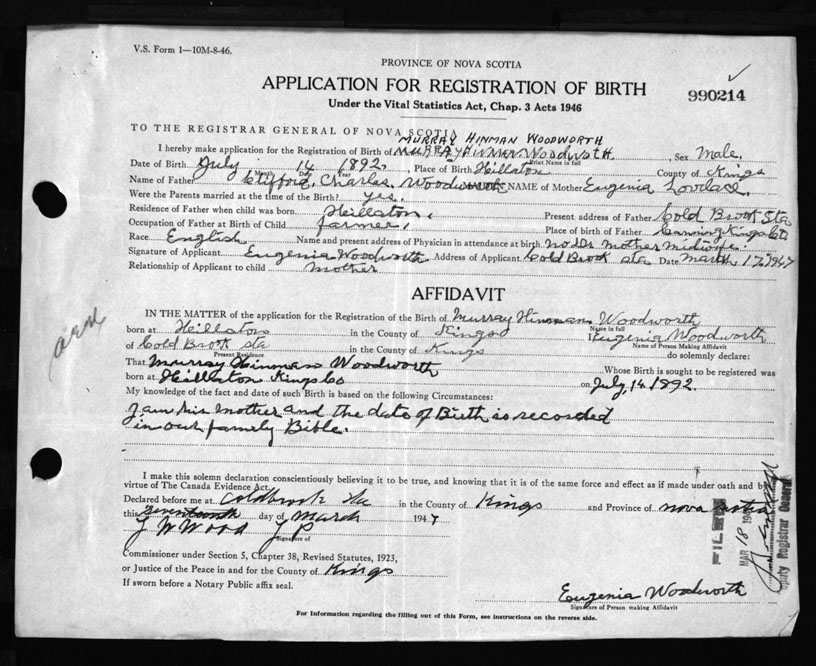 V.S. Form 1—10M-8-46.
PROVINCE OF NOVA SCOTIA
APPLICATION FOR REGISTRATION OF BIRTH
990214
Under the Vital Statistics Act, Chap. 3 Acts 1946
TO THE REGISTRAR GENERAL OF NOVA SCOTIA
MURRAY HINMAN WOODWORTH
I hereby make application for the Registration of Birth of Murray Hinman Woodworth Sex Male.
Print Name in full
Date of Birth July 14 1892 Place of Birth Hillaton County of Kings
Month Date Year
Name of Father Clifford Charles Woodworth MAIDEN NAME of Mother Eugenia Lovelace
Were the Parents married at the time of the Birth? yes.
Residence of Father when child was born Hillaton. Present address of Father Cold Brook Sta
Occupation of Father at Birth of Child farmer. Place of birth of Father Canning Kings Co
Race English Name and present address of Physician in attendance at birth no Dr Mother midwife.
Signature of Applicant Eugenia Woodworth Address of Applicant Cold Brook Sta Date March 17 1947
Relationship of Applicant to child mother
AFFIDAVIT
IN THE MATTER of the application for the Registration of the Birth of Murray Hinman Woodworth
Name in full
born at Hillaton in the County of Kings I Eugenia Woodworth
Name of Person Making Affidavit
of Cold Brook Sta in the County of Kings do solemnly declare:
Present Residence
That Murray Hinman Woodworth Whose Birth is sought to be registered was
born at Hillaton Kings Co on July, 14, 1892.
My knowledge of the fact and date of such Birth is based on the following Circumstances:
I am his mother and the date of Birth is recorded
in our family Bible.
I make this solemn declaration conscientiously believing it to be true, and knowing that it is of the same force and effect as if made under oath and by
virtue of The Canada Evidence Act.
Declared before me at Coldbrook Sta in the County of Kings and Province of Nova Scotia
this seventeenth day of March 1947
J W Wood J P
Signature of
Commissioner under Section 5, Chapter 38, Revised Statutes, 1923,
or Justice of the Peace in and for the County of Kings
If sworn before a Notary Public affix seal.
FILED
MAR 18 194
Deputy Registrar General
Eugenia Woodworth
Signature of Person making Affidavit
For Information regarding the filling out of this Form, see instructions on the reverse side.